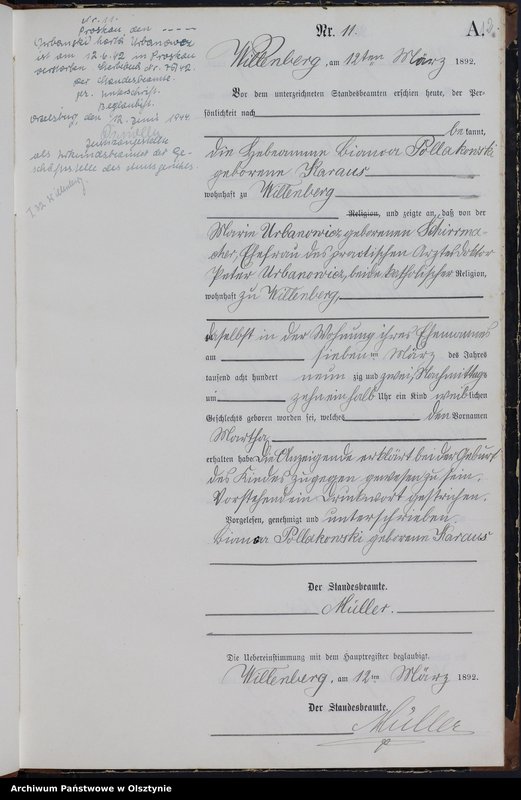 Nr. 11.
Proskau den -----
ist am 12.6.42 in Proskau
verstorben Nr. 76/42.
der Standesbeamte.
gz. Unterschrift.
Beglaubigt.
Ortelsburg, den 12. Juni 1944
Justizangestellte
als Urkundsbeamter der Ge-
schäftsstelle des Amtsgerichts
Willenberg
Nr. 11.
A.
Willenberg, am 12ten März 1892.
Vor dem unterzeichneten Standesbeamten erschien heute, der Per-
sönlichkeit nach
be kannt,
die Hebeamme Bianca Pollakowski
geborene Karaus
wohnhaft zu Willenberg
Religion, und zeigte an, daß von der
Marie Urbanowicz geborenen Schirrma-
cher, Ehefrau des practischen Arztes Doktor
Peter Urbanowicz, beide katholischer Religion,
wohnhaft zu Willenberg,
daselbst in der Wohnung ihres Ehemannes
am sieben ten März des Jahres
tausend acht hundert neun zig und zwei, Nachmittags
um zehn einhalb Uhr ein Kind weiblichen
Geschlechts geboren worden sei, welches den Vornamen
Martha
erhalten habe. Die Anzeigende erklärt bei der Geburt
des Kindes zugegen gewesen zu sein.
Vorstehend ein Druckwort gestrichen.
Vorgelesen, genehmigt und unterschrieben.
Bianca Pollakowski geborene Karaus
Der Standesbeamte.
Müller.
Die Uebereinstimmung mit dem Hauptregister beglaubigt.
Willenberg, am 12ten März 1892.
Der Standesbeamte.
Müller
Archiwum Państwowe w Olsztynie